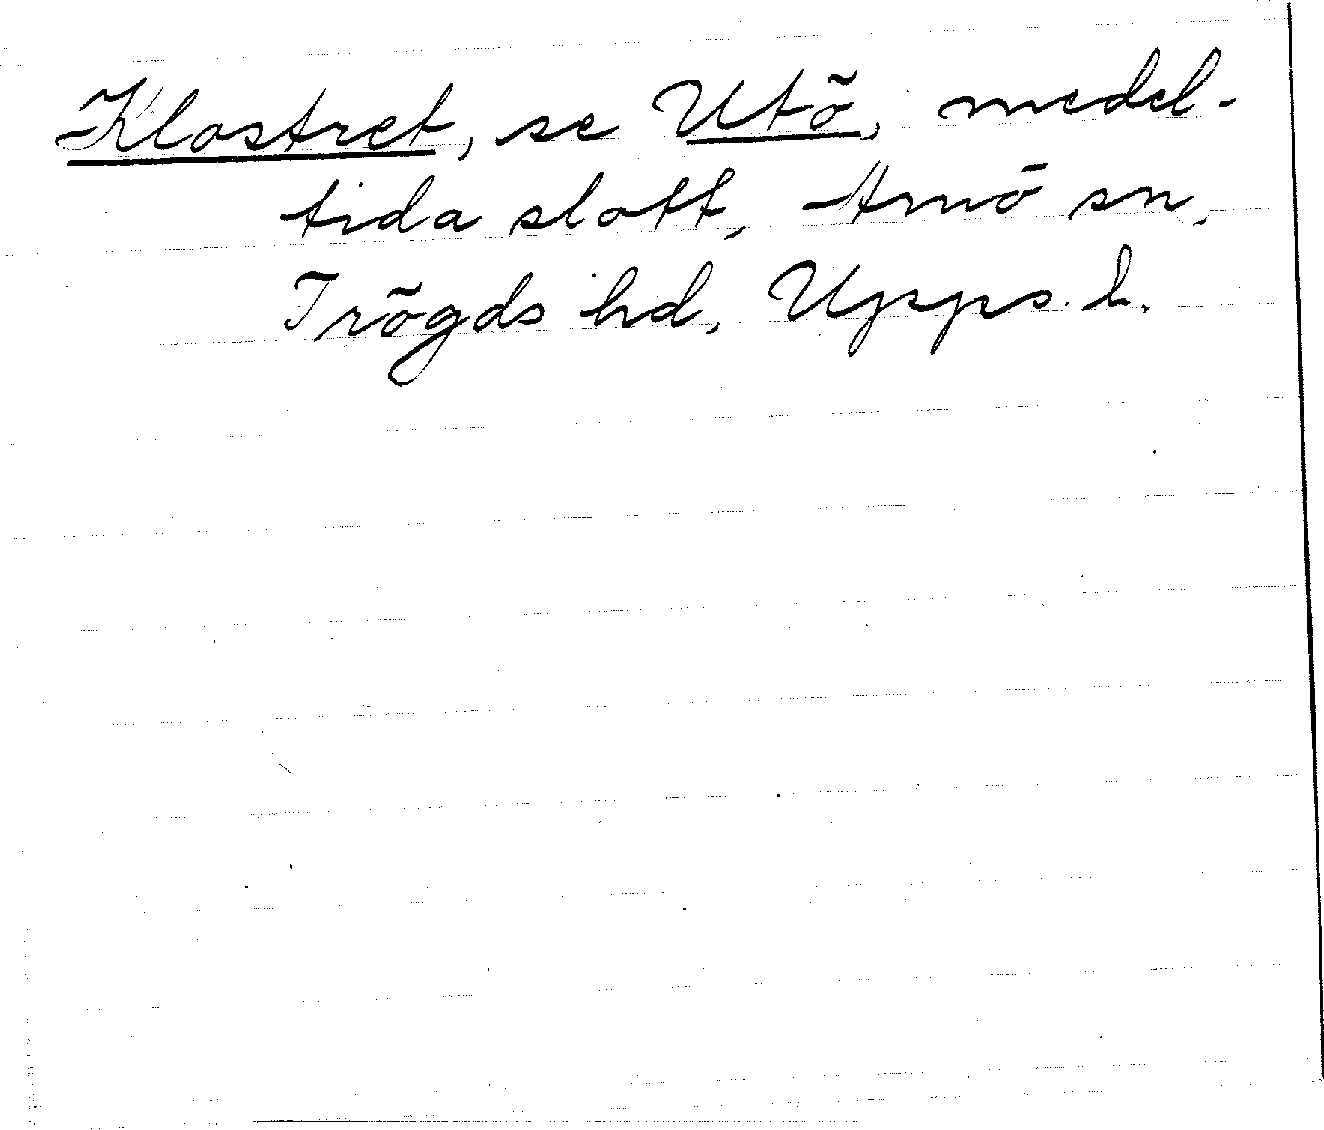 Klostret, se Utö, medel-
tida slott, Arnö sn,
Trögds hd, Upps. l.